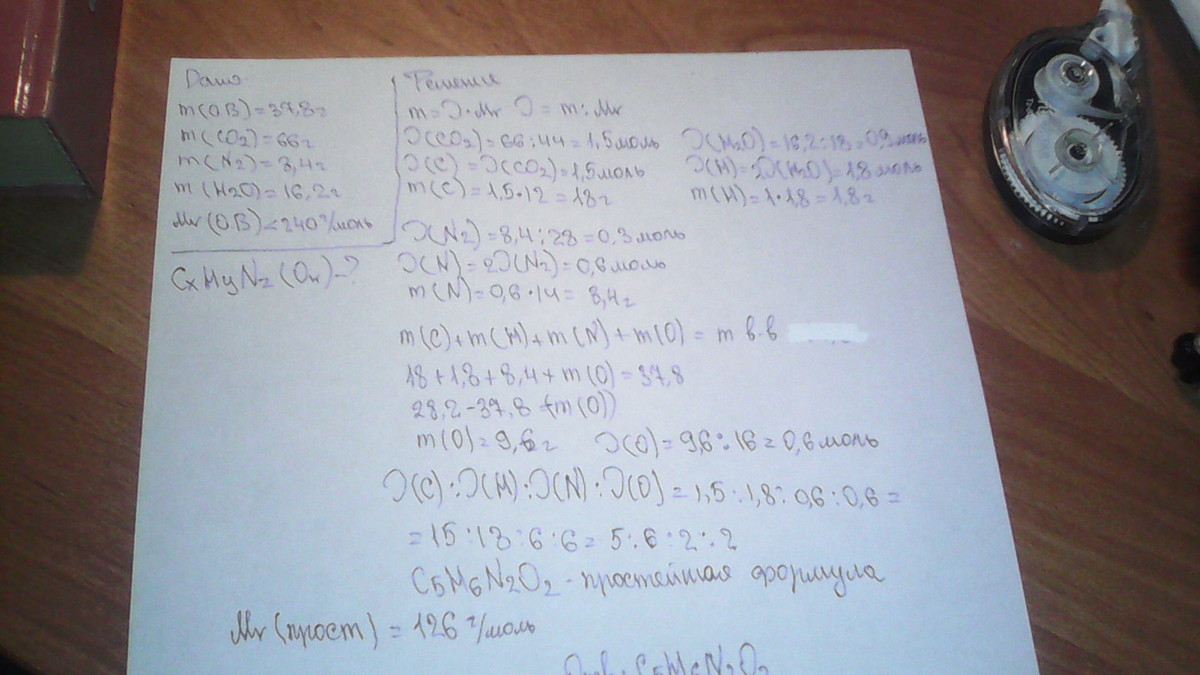 Дано
m(ОВ)=37,8г
m(CO2)=66г
m(N2)=8,4г
m(H2O)=16,2г
Mr(OB)<240г/моль
CxHyN2(On)-?
Решение
m=Ɔ·Mr Ɔ=m:Mr
Ɔ(CO2)=66:44=1,5моль
Ɔ(C)=Ɔ(CO2)=1,5моль
m(C)=1,5·12=18г
Ɔ(H2O)=16,2:18=0,9моль
Ɔ(H)=2Ɔ(H2O)=1,8моль
m(H)=1·1,8=1,8г
Ɔ(N2)=8,4:28=0,3моль
Ɔ(N)=2Ɔ(N2)=0,6моль
m(N)=0,6·14=8,4г
m(C)+m(H)+m(N)+m(O)=m в-в
18+1,8+8,4+m(O)=37,8
28,2-37,8=(m(O))
m(O)=9,6г Ɔ(O)=9,6:16=0,6моль
Ɔ(C):Ɔ(H):Ɔ(N):Ɔ(O)=1,5:1,8:0,6:0,6=
=15:18:6:6=5:6:2:2
C5H6N2O2-простейшая формула
Mr(прост)=126г/моль
C5H6N2O2